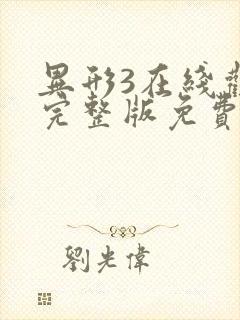 異形3在綫
完整版免費
劉光偉